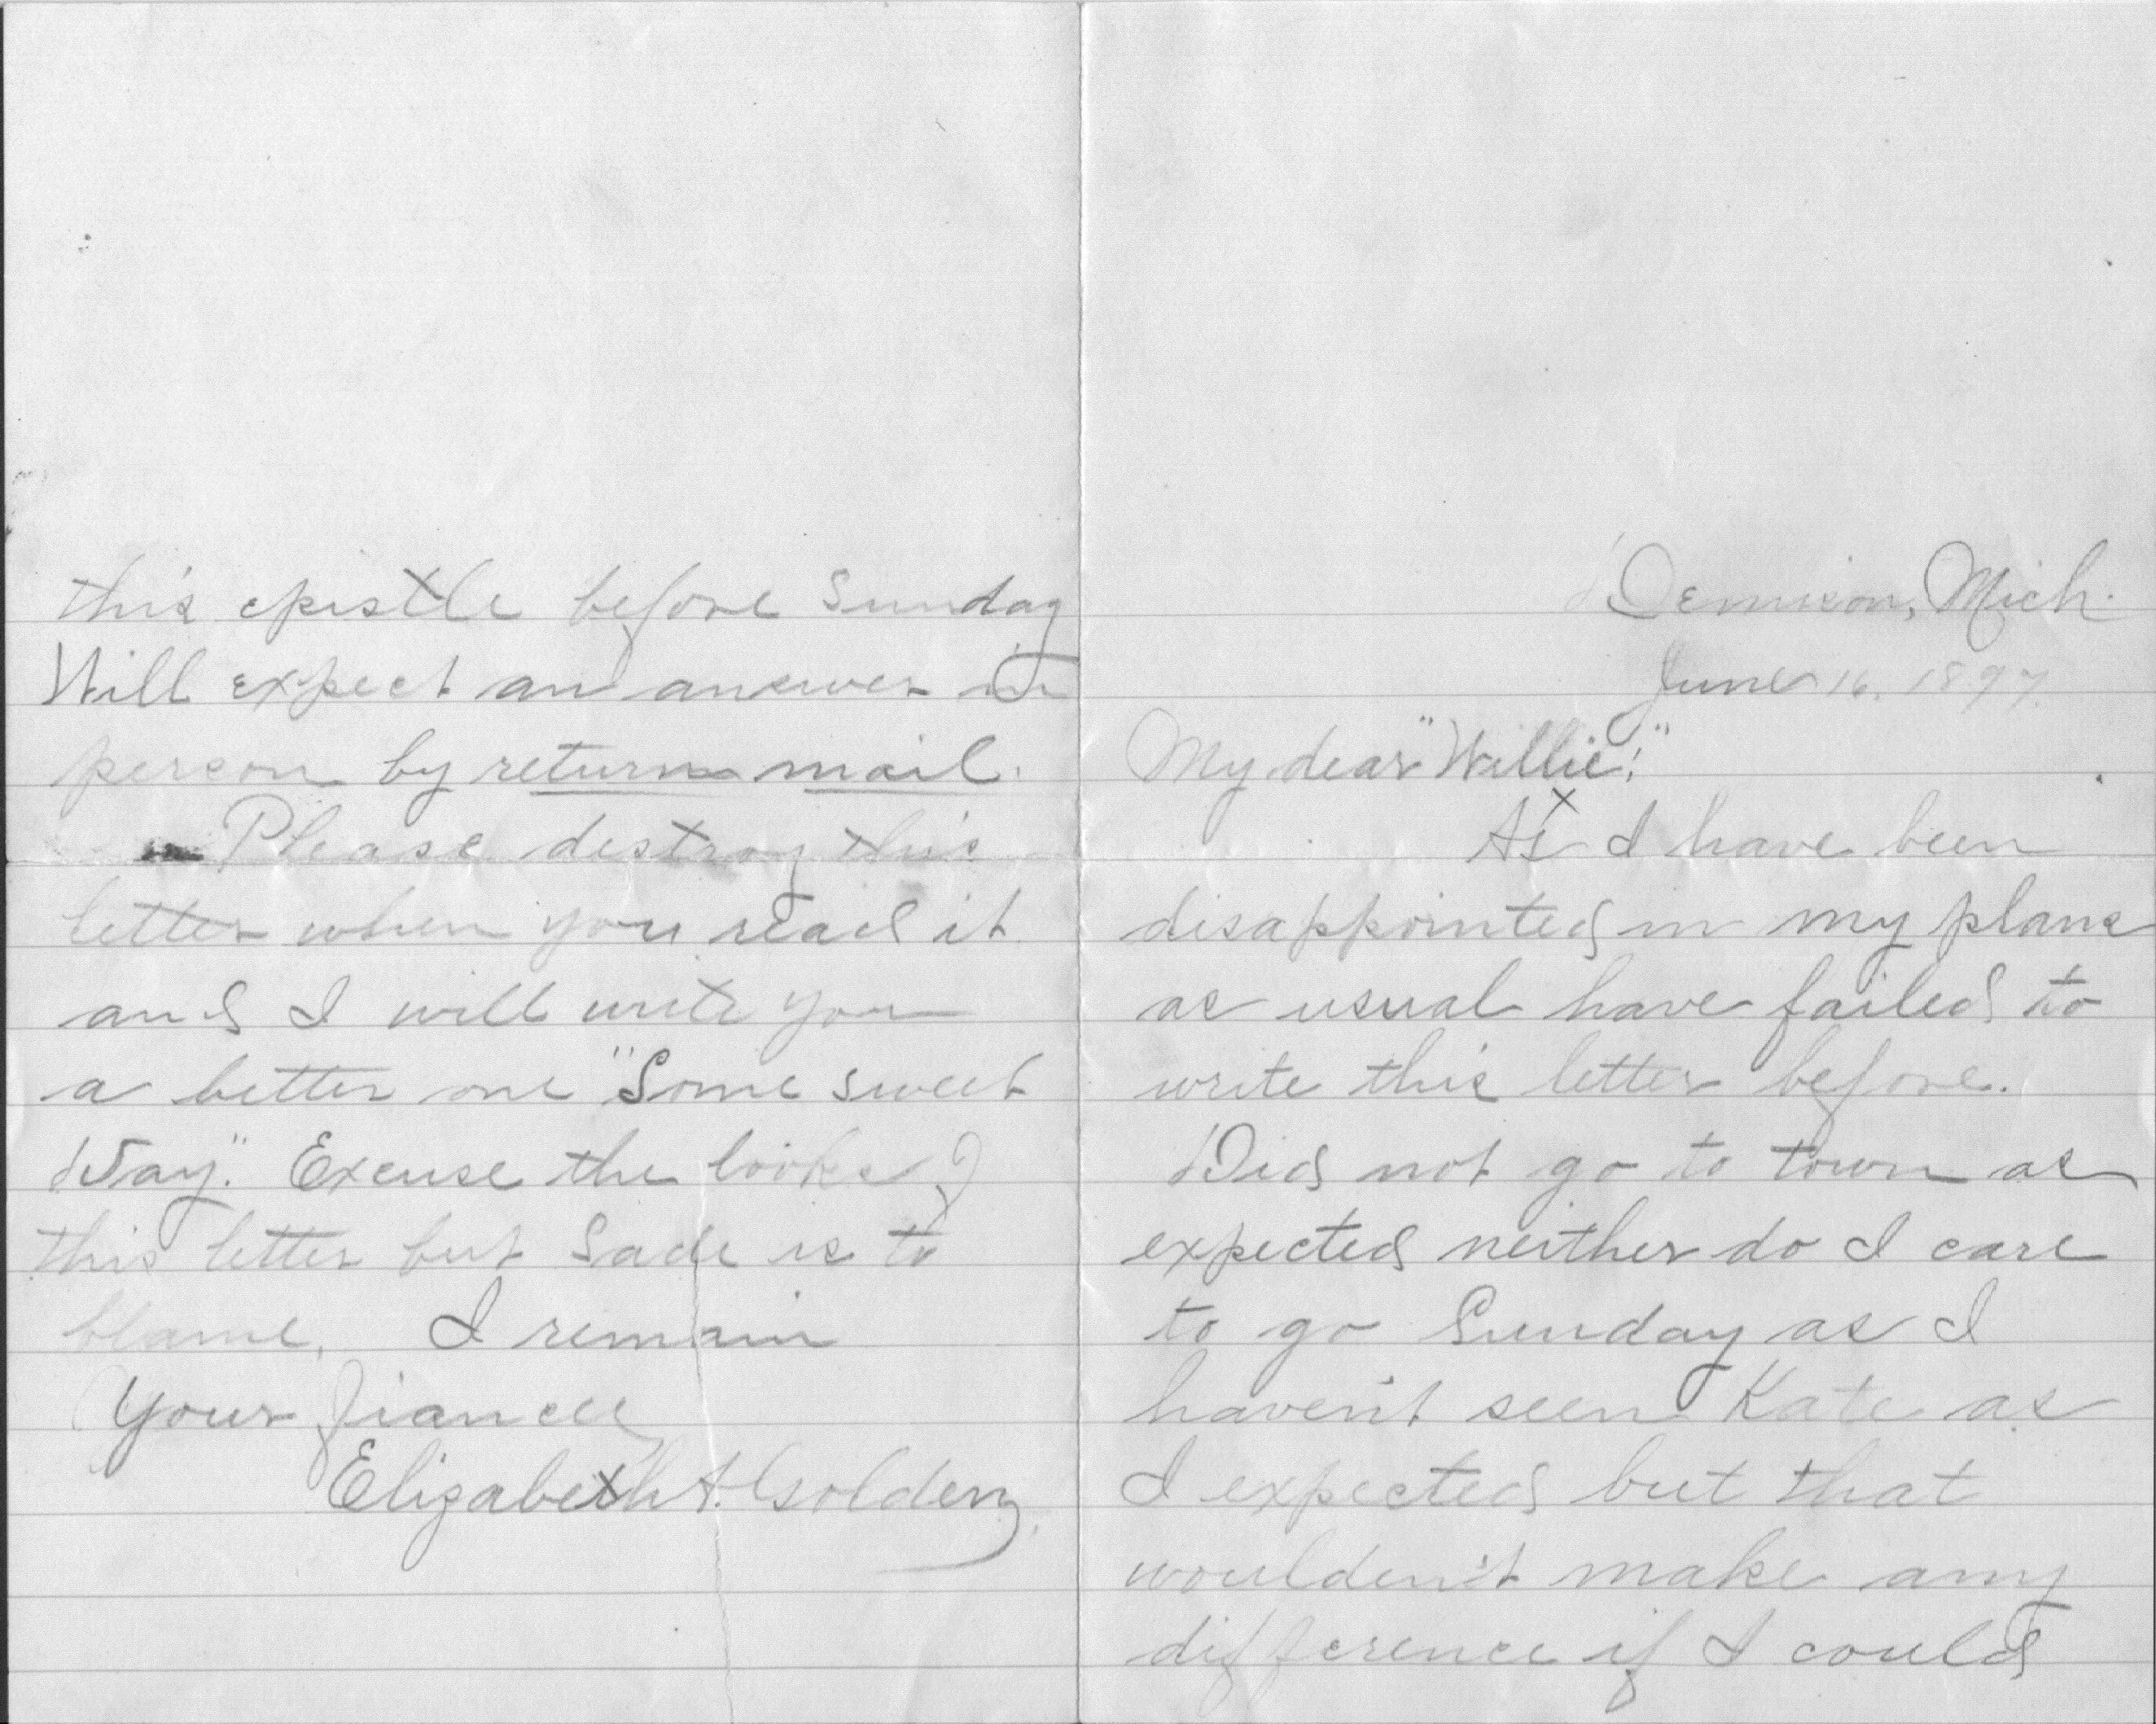 Dennison, Mich.
June 16, 1897.
My dear "Willie":
As I have been
disappointed in my plans
as usual have failed to
write this letter before.
Did not go to town as
expected neither do I care
to go Sunday as I
haven't seen Kate as
I expected but that
woulden't make any
difference if I could
this epistle before Sunday
Will expect an answer in
person by return mail.
Please destroy this
letter when you read it
and I will write you
a better one "Some sweet
Day". Excuse the looks of
this letter but Sade is to
blame. I remain
Your fiancee
Elizabeth A. Golden.